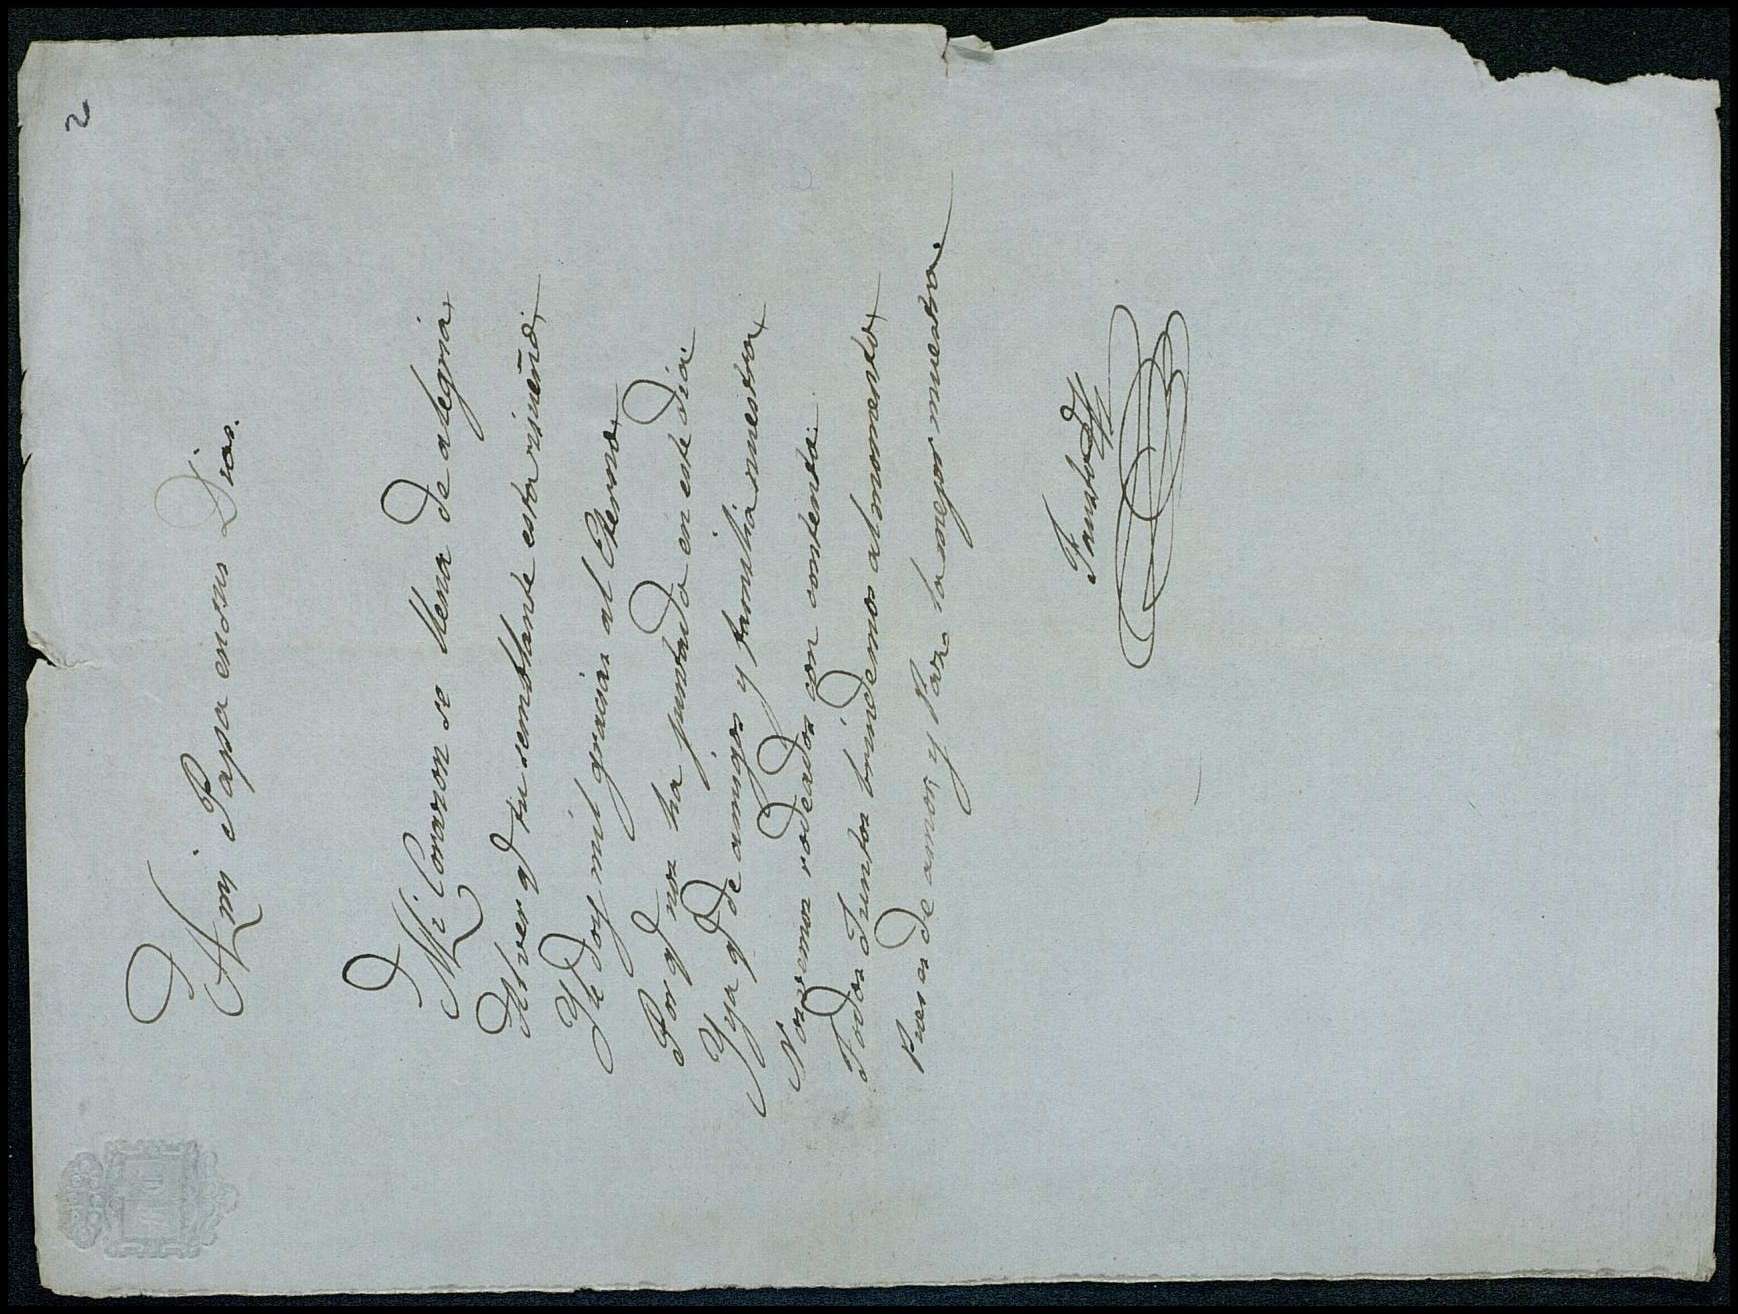 2
A mi Papa en sus Dias.
Mi Corazon se llena de alegria
Al ver q.e tu semblante esta risueño:
Y le doy mil gracias al Eterno
Por q.e nos ha juntado en este dia.
Y ya q.e de amigos y familia nuestra
Nos vemos rodeados con contento.
Todos Juntos brindemos al momento
Pues es de amor y Paz la mejor muestra.
Fausto